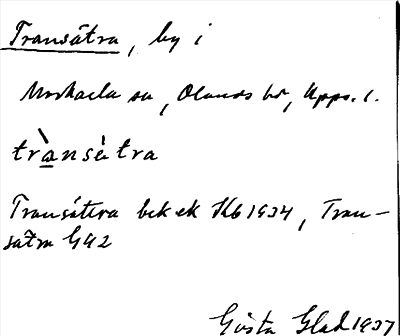 Transätra, by i
Morkarla sn, Olands hd, Upps. l.
trànsètra
Transätra bek ek Kb 1934, Tran-
sätra GA2
Gösta Glad 1937